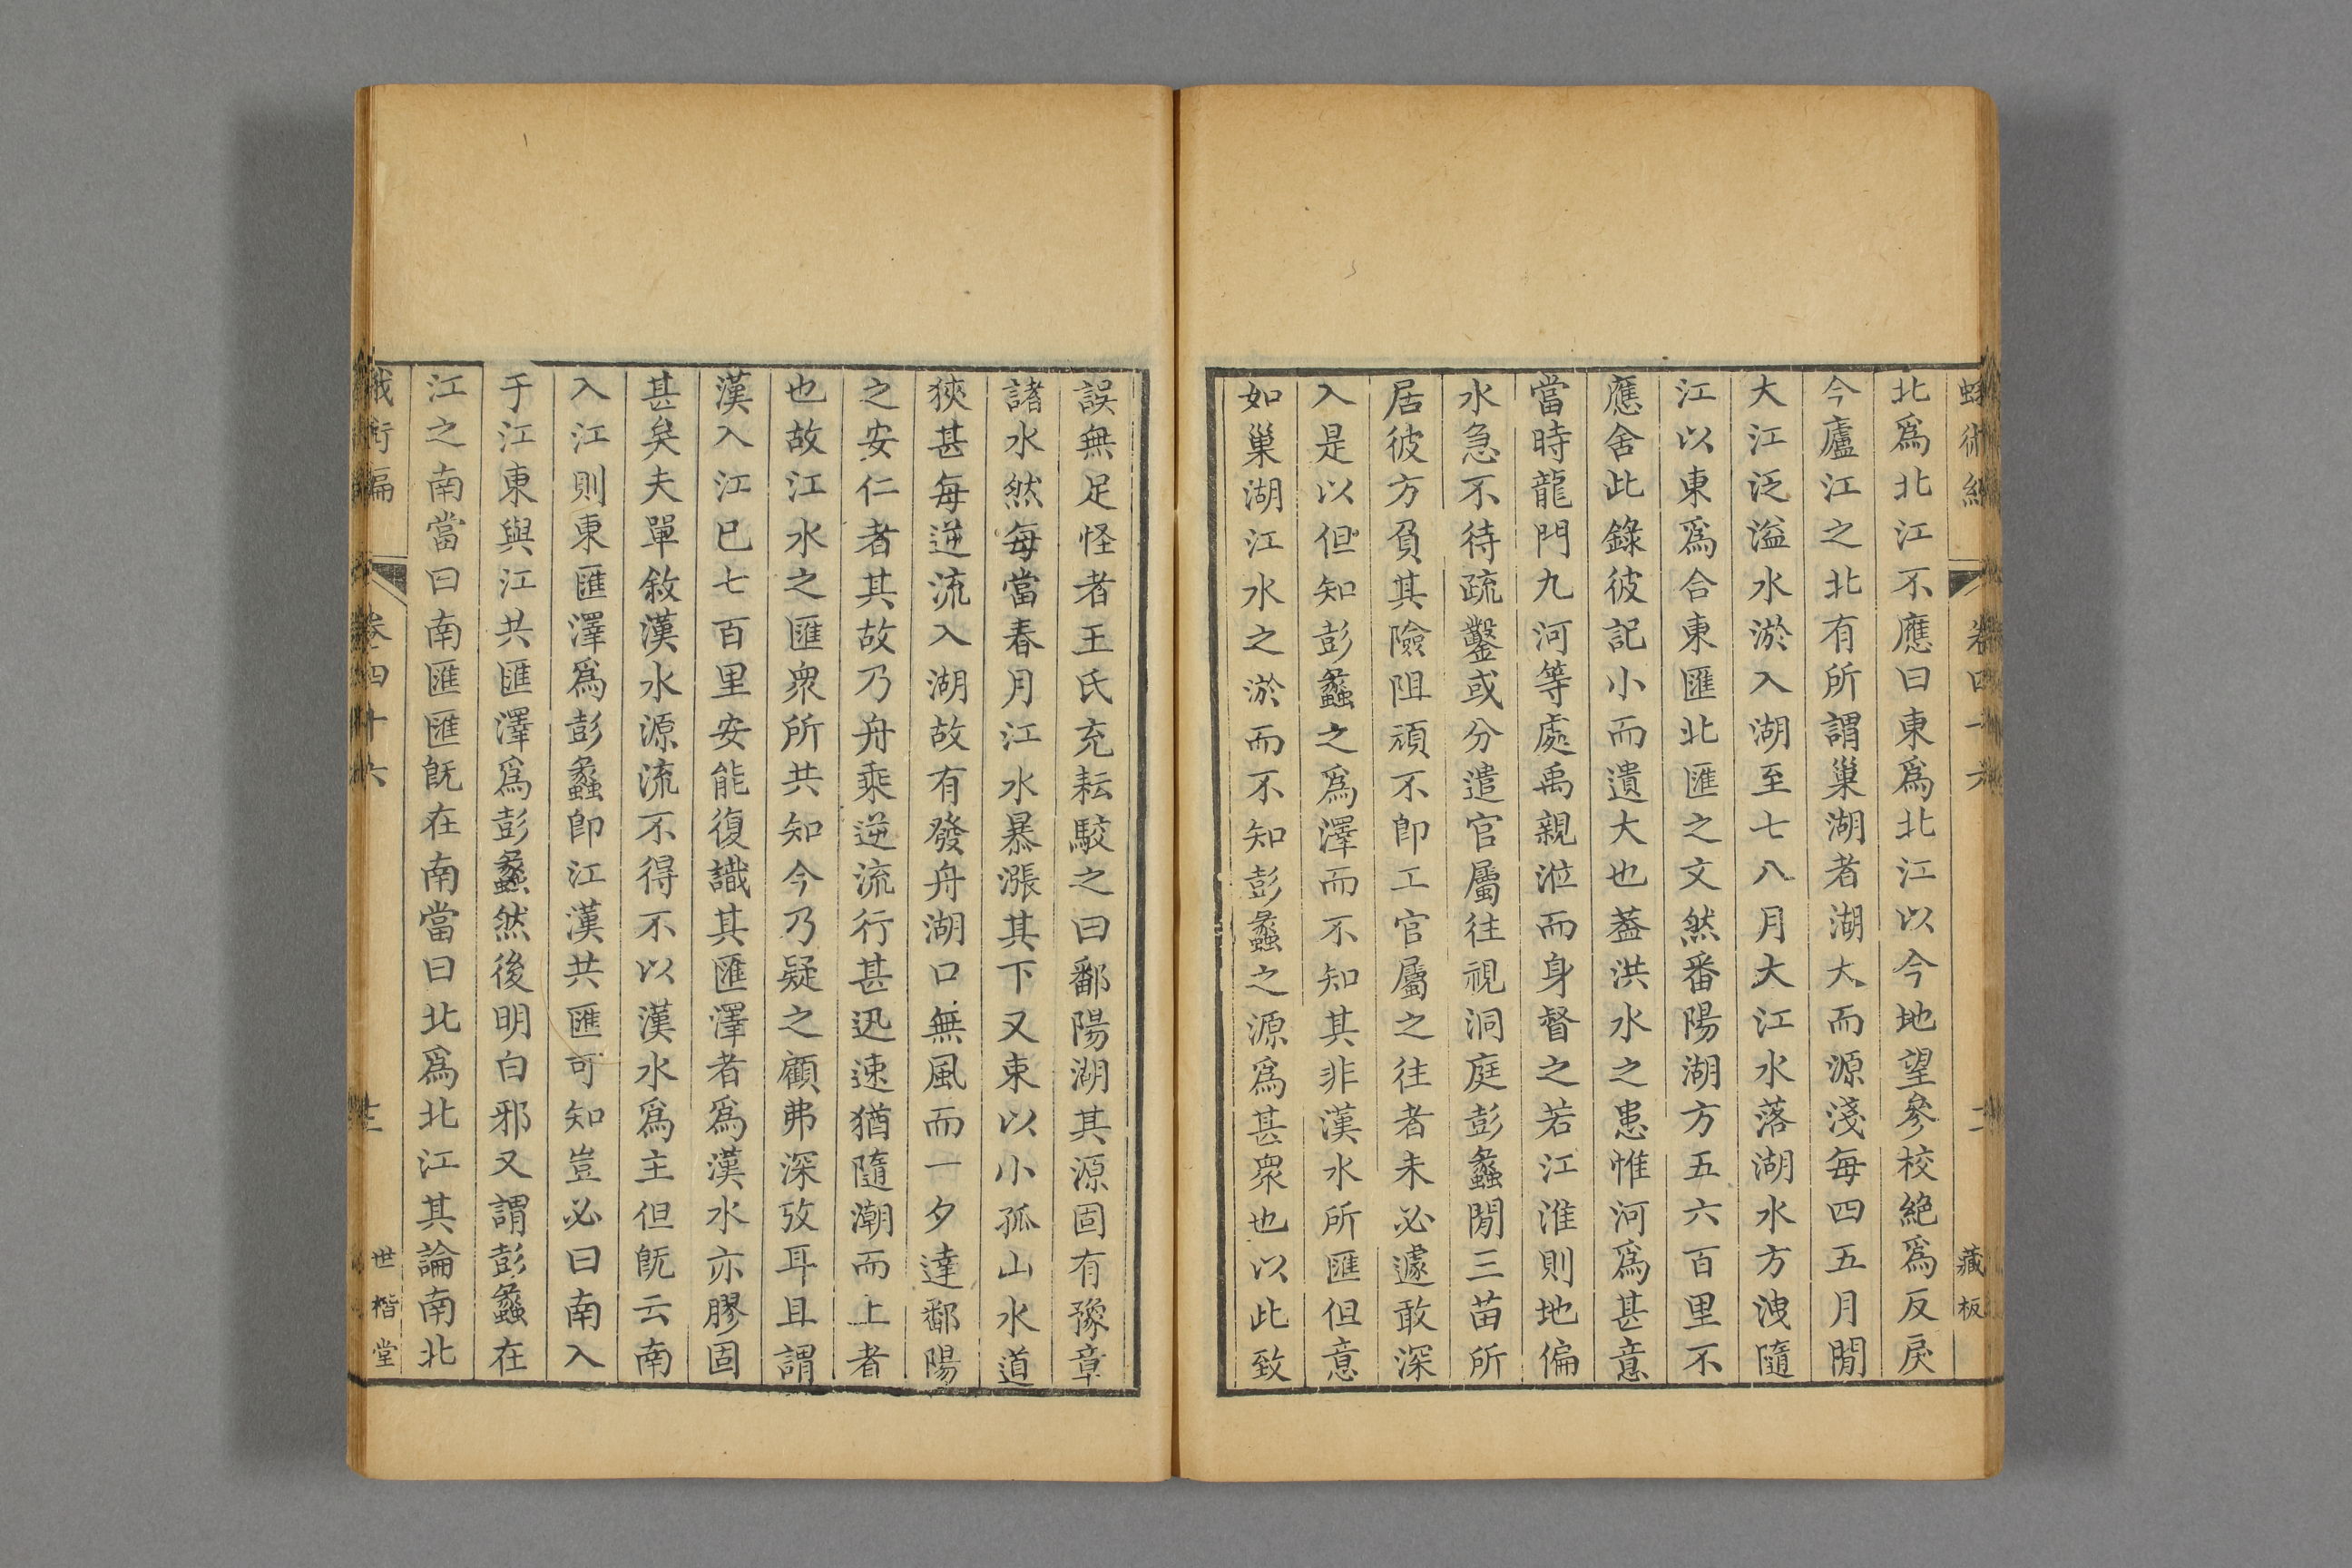 術編
卷四十六
藏板
北爲北江不應曰東爲北江以今地望參校絶爲反戾
今廬江之北有所謂巢湖者湖大而源淺每四五月閒
大江泛溢水淤入湖至七八月大江水落湖水方洩隨
江以東爲合東匯北匯之文然番陽湖方五六百里不
應舍此錄彼記小而遺大也葢洪水之患惟河爲甚意
當時龍門九河等處禹親涖而身督之若江淮則地偏
水急不待疏鑿或分遣官屬往視洞庭彭蠡閒三苗所
居彼方負其險阻頑不卽工官屬之往者未必遽敢深
入是以但知彭蠡之爲澤而不知其非漢水所匯但意
如巢湖江水之淤而不知彭蠡之源爲甚衆也以此致
誤無足怪者王氏充耘駮之曰鄱陽湖其源固有豫章
諸水然每當春月江水暴漲其下又束以小孤山水道
狹甚每逆流入湖故有發舟湖口無風而一夕達鄱陽
之安仁者其故乃舟乘逆流行甚迅速猶隨潮而上者
也故江水之匯衆所共知今乃疑之顧弗深攷耳且謂
漢入江巳七百里安能復識其匯澤者爲漢水亦膠固
甚矣夫單敘漢水源流不得不以漢水爲主但旣云南
入江則東匯澤爲彭蠡卽江漢共匯可知豈必曰南入
于江東與江共匯澤爲彭蠡然後明白邪又謂彭蠡在
江之南當曰南匯匯旣在南當曰北爲北江其論南北
蛾術編
卷四十六
世楷堂